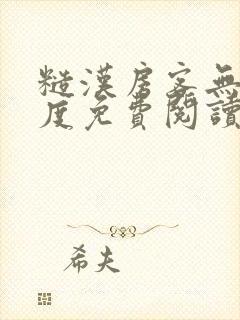 糙漢房客無
度免費閱讀
希夫